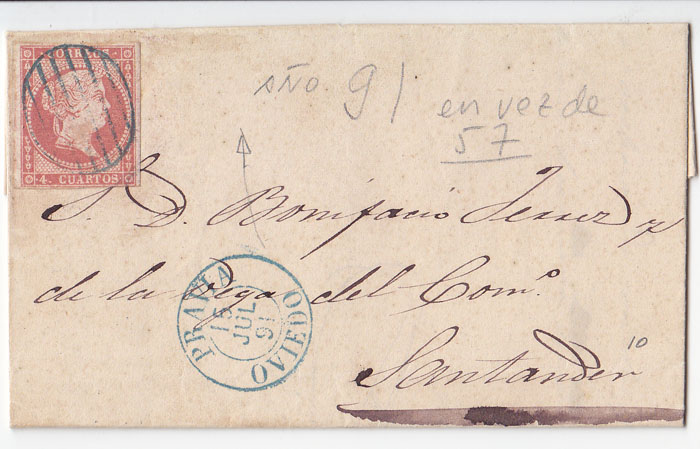 CORREOS
4. CUARTOS
año. 91
en vez de
57
S. D. Bonifacio Ferrer y
de la Vega del Com.º
Santander
10
PRAVIA
15
JUL
91
OVIEDO